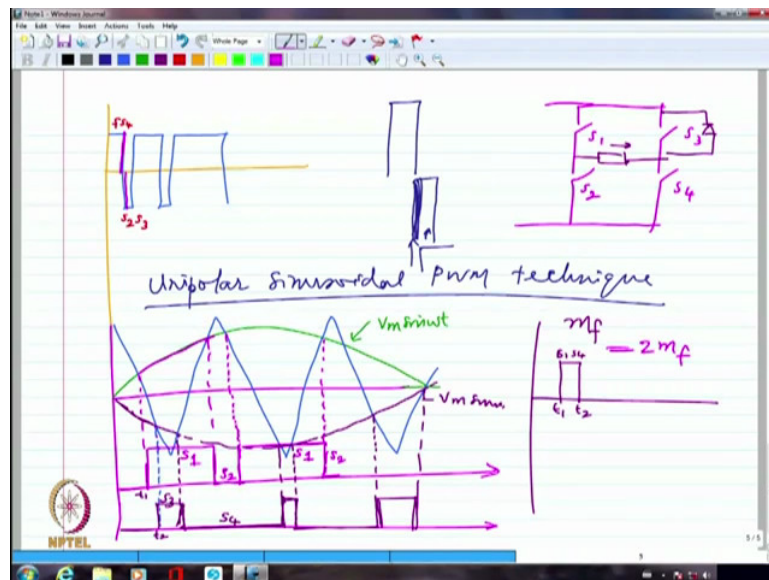 Note1 - Windows Journal
File Edit View Insert Actions Tools Help
Whole Page
B I
S4
S2 S3
S1
S3
S2
S4
Unipolar sinusoidal PWM technique
Vm sinωt
mf
= 2mf
S1 S4
t1 t2
S1
S2
S1
S2
t1
S3
S4
t2
NPTEL
5 / 5
5